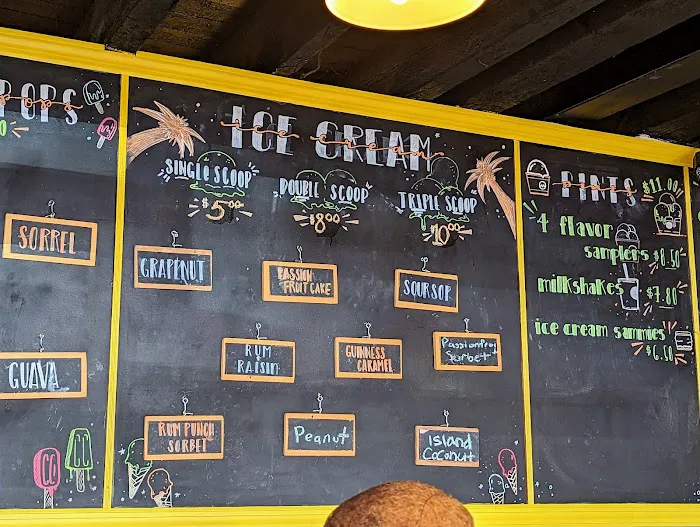 POPS
SORREL
GUAVA
ICE CREAM
ice cream
SINGLE SCOOP
$5.00
DOUBLE SCOOP
$8.00
TRIPLE SCOOP
$10.00
GRAPENUT
PASSION
FRUIT CAKE
SOURSOP
RUM
RAISIN
GUINNESS
CARAMEL
Passionfruit
Sorbet
RUM PUNCH
SORBET
Peanut
Island
Coconut
PINTS $11.00
4 flavor
samplers $8.50
milkshakes $7.80
ice cream sammies
$6.50